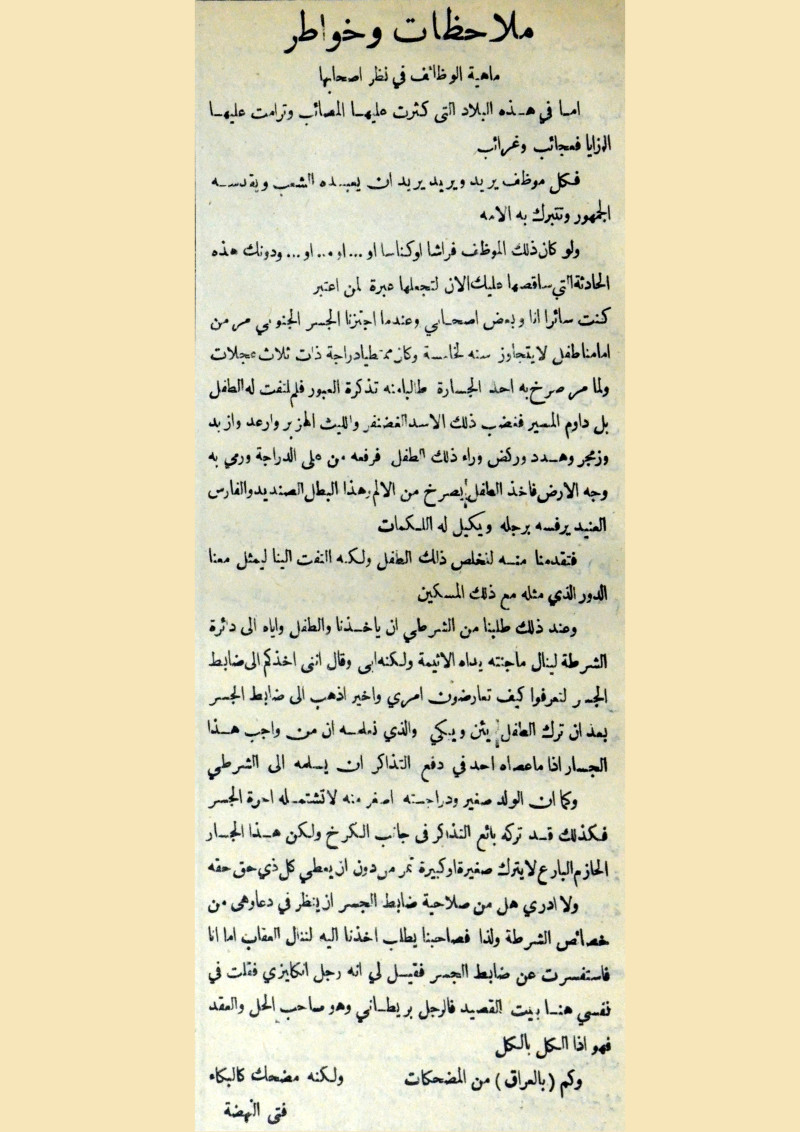 ملاحظات وخواطر
ماهية الوظائف في نظر اصحابها
اما في هذه البلاد التى كثرت عليها المصائب وترامت عليها
الرزايا فعجائب وغرائب
فكل موظف يريد ويريد يريد ان يعبده الشعب ويقدسه
الجمهور وتتبرك به الامه
ولو كان ذلك الموظف فراشا او كناسا او ... او ... او ... ودونك هذه
الحادثة التي ساقصها عليك الان لتجعلها عبرة لمن اعتبر
كنت سائرا انا وبعض اصحابي وعندما اجتزنا الجسر الجنوبي مر من
امامنا طفل لا يتجاوز سنه لخامسة وكان ممتطيا دراجة ذات ثلاث عجلات
ولما مر صرخ به احد الجسارة طالبا منه تذكرة العبور فلم لتفت له الطفل
بل داوم المسير فغضب ذلك الاسد الغضنفر والليث الهزبر وارعد وازبد
وزمجر وهدد وركض وراء ذلك الطفل فرفعه من على الدراجة ورمي به
وجه الارض فاخذ الطفل يصرخ من الالم وهذا البطل الصنديد والفارس
العنيد يرفسه برجله ويكيل له اللكمات
فتقدمنا منه لنخلص ذلك الطفل ولكنه التفت الينا ليمثل معنا
الدور الذي مثله مع ذلك المسكين
وعند ذلك طلبنا من الشرطي ان ياخذنا والطفل واياه الى دائرة
الشرطة لينال ماجنته يداه الاثيمة ولكنه ابى وقال اننى اخذكم الى ضابط
الجسر لتعرفوا كيف تعارضون امري واخير اذهب الى ضابط الجسر
بعد ان ترك الطفل يئن ويبكي والذي نعلمه ان من واجب هذا
الجسار اذا ماعصاه احد في دفع التذاكر ان يسلمه الى الشرطي
وكما ان الولد صغير ودراجته اصغر منه لا تشتمله اجرة الجسر
فكذلك قد تركه بائع التذاكر في جانب الكرخ ولكن هذا الجسار
الحازم البارع لا يترك صغيرة او كبيرة تمر من دون ان يعطي كل ذي حق حقه
ولا ادري هل من صلاحية ضابط الجسر ان ينظر في دعاوهى من
خصائص الشرطة ولذا فصاحبنا يطلب اخذنا اليه لننال العقاب اما انا
فاستفسرت عن ضابط الجسر فقيل لي انه رجل انكليزي فقلت في
نفسي هنا بيت القصيد فالرجل بريطاني وهو صاحب الحل والعقد
فهو اذا الكل بالكل
وكم (بالعراق) من المضحكات ولكنه مضحك كالبكاء
فتى النهضة